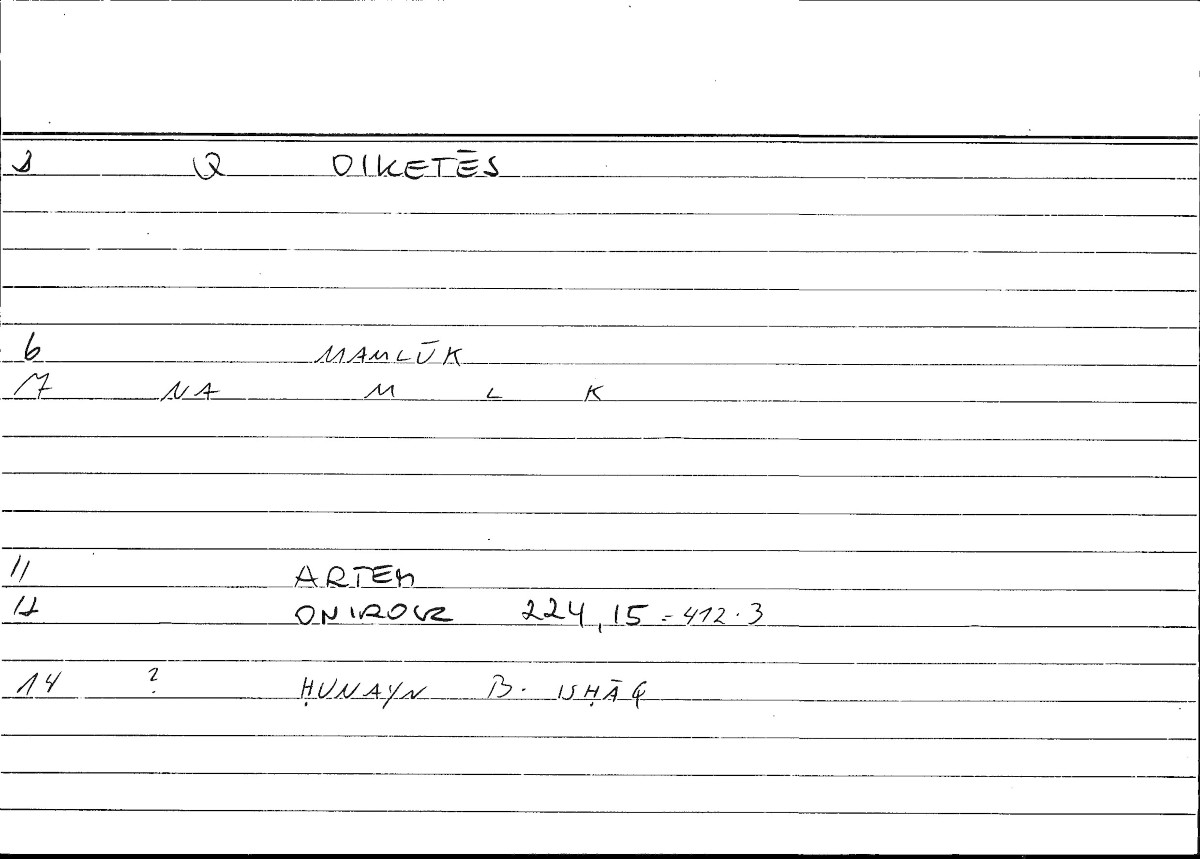 1 Q OIKETĒS
6 MAMLŪK
7 NA M L K
11 ARTEM
12 ONIROCR 224,15 = 412.3
14 ? ḤUNAYN B. ISḤĀQ